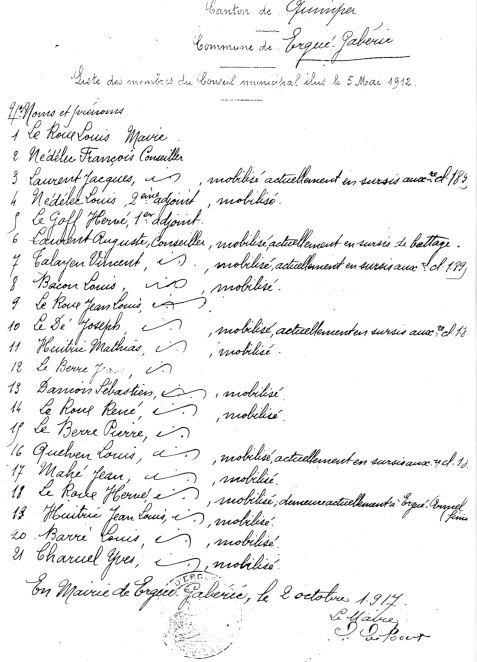 Canton de Quimper
Commune de Ergué-Gabéric
Liste des membres du Conseil municipal élus le 5 Mai 1912.
Nos Noms et prénoms
1 Le Roux Louis Maire
2 Nédélec François Conseiller
3 Laurent Jacques, id , mobilisé actuellement en sursis aux
4 Nédélec Louis, 2ème adjoint, mobilisé.
5 Le Goff Hervé, 1er adjoint.
6 Laurent Auguste, Conseiller, mobilisé, actuellement en sursis de battage.
7 Talayen Vincent, id , mobilisé, actuellement en sursis aux
8 Bacon Louis, id , mobilisé.
9 Le Roux Jean Louis, id
10 Le Dé Joseph, id , mobilisé, actuellement en sursis aux
11 Huitric Mathias, id , mobilisé.
12 Le Berre Jean, id
13 Danion Sébastien, id , mobilisé.
14 Le Roux René, id , mobilisé.
15 Le Berre Pierre, id
16 Quelven Louis, id , mobilisé, actuellement en sursis aux
17 Mahé Jean, id , mobilisé.
18 Le Roux Hervé, id , mobilisé, demeure actuellement à Ergué-Armel
19 Huitric Jean Louis, id , mobilisé.
20 Barré Louis, id , mobilisé.
21 Charuel Yves, id , mobilisé.
En Mairie de Ergué-Gabéric, le 2 octobre 1917.
Le Maire